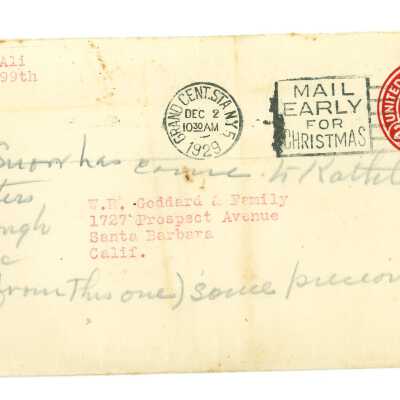 Ali
99th
GRAND CENT. STA. N.Y. 5
DEC 2
10 30 AM
1929
MAIL
EARLY
FOR
CHRISTMAS
UNITED
Snow has come to
W.R. Goddard & Family
1727 Prospect Avenue
Santa Barbara
Calif.
from this one) some